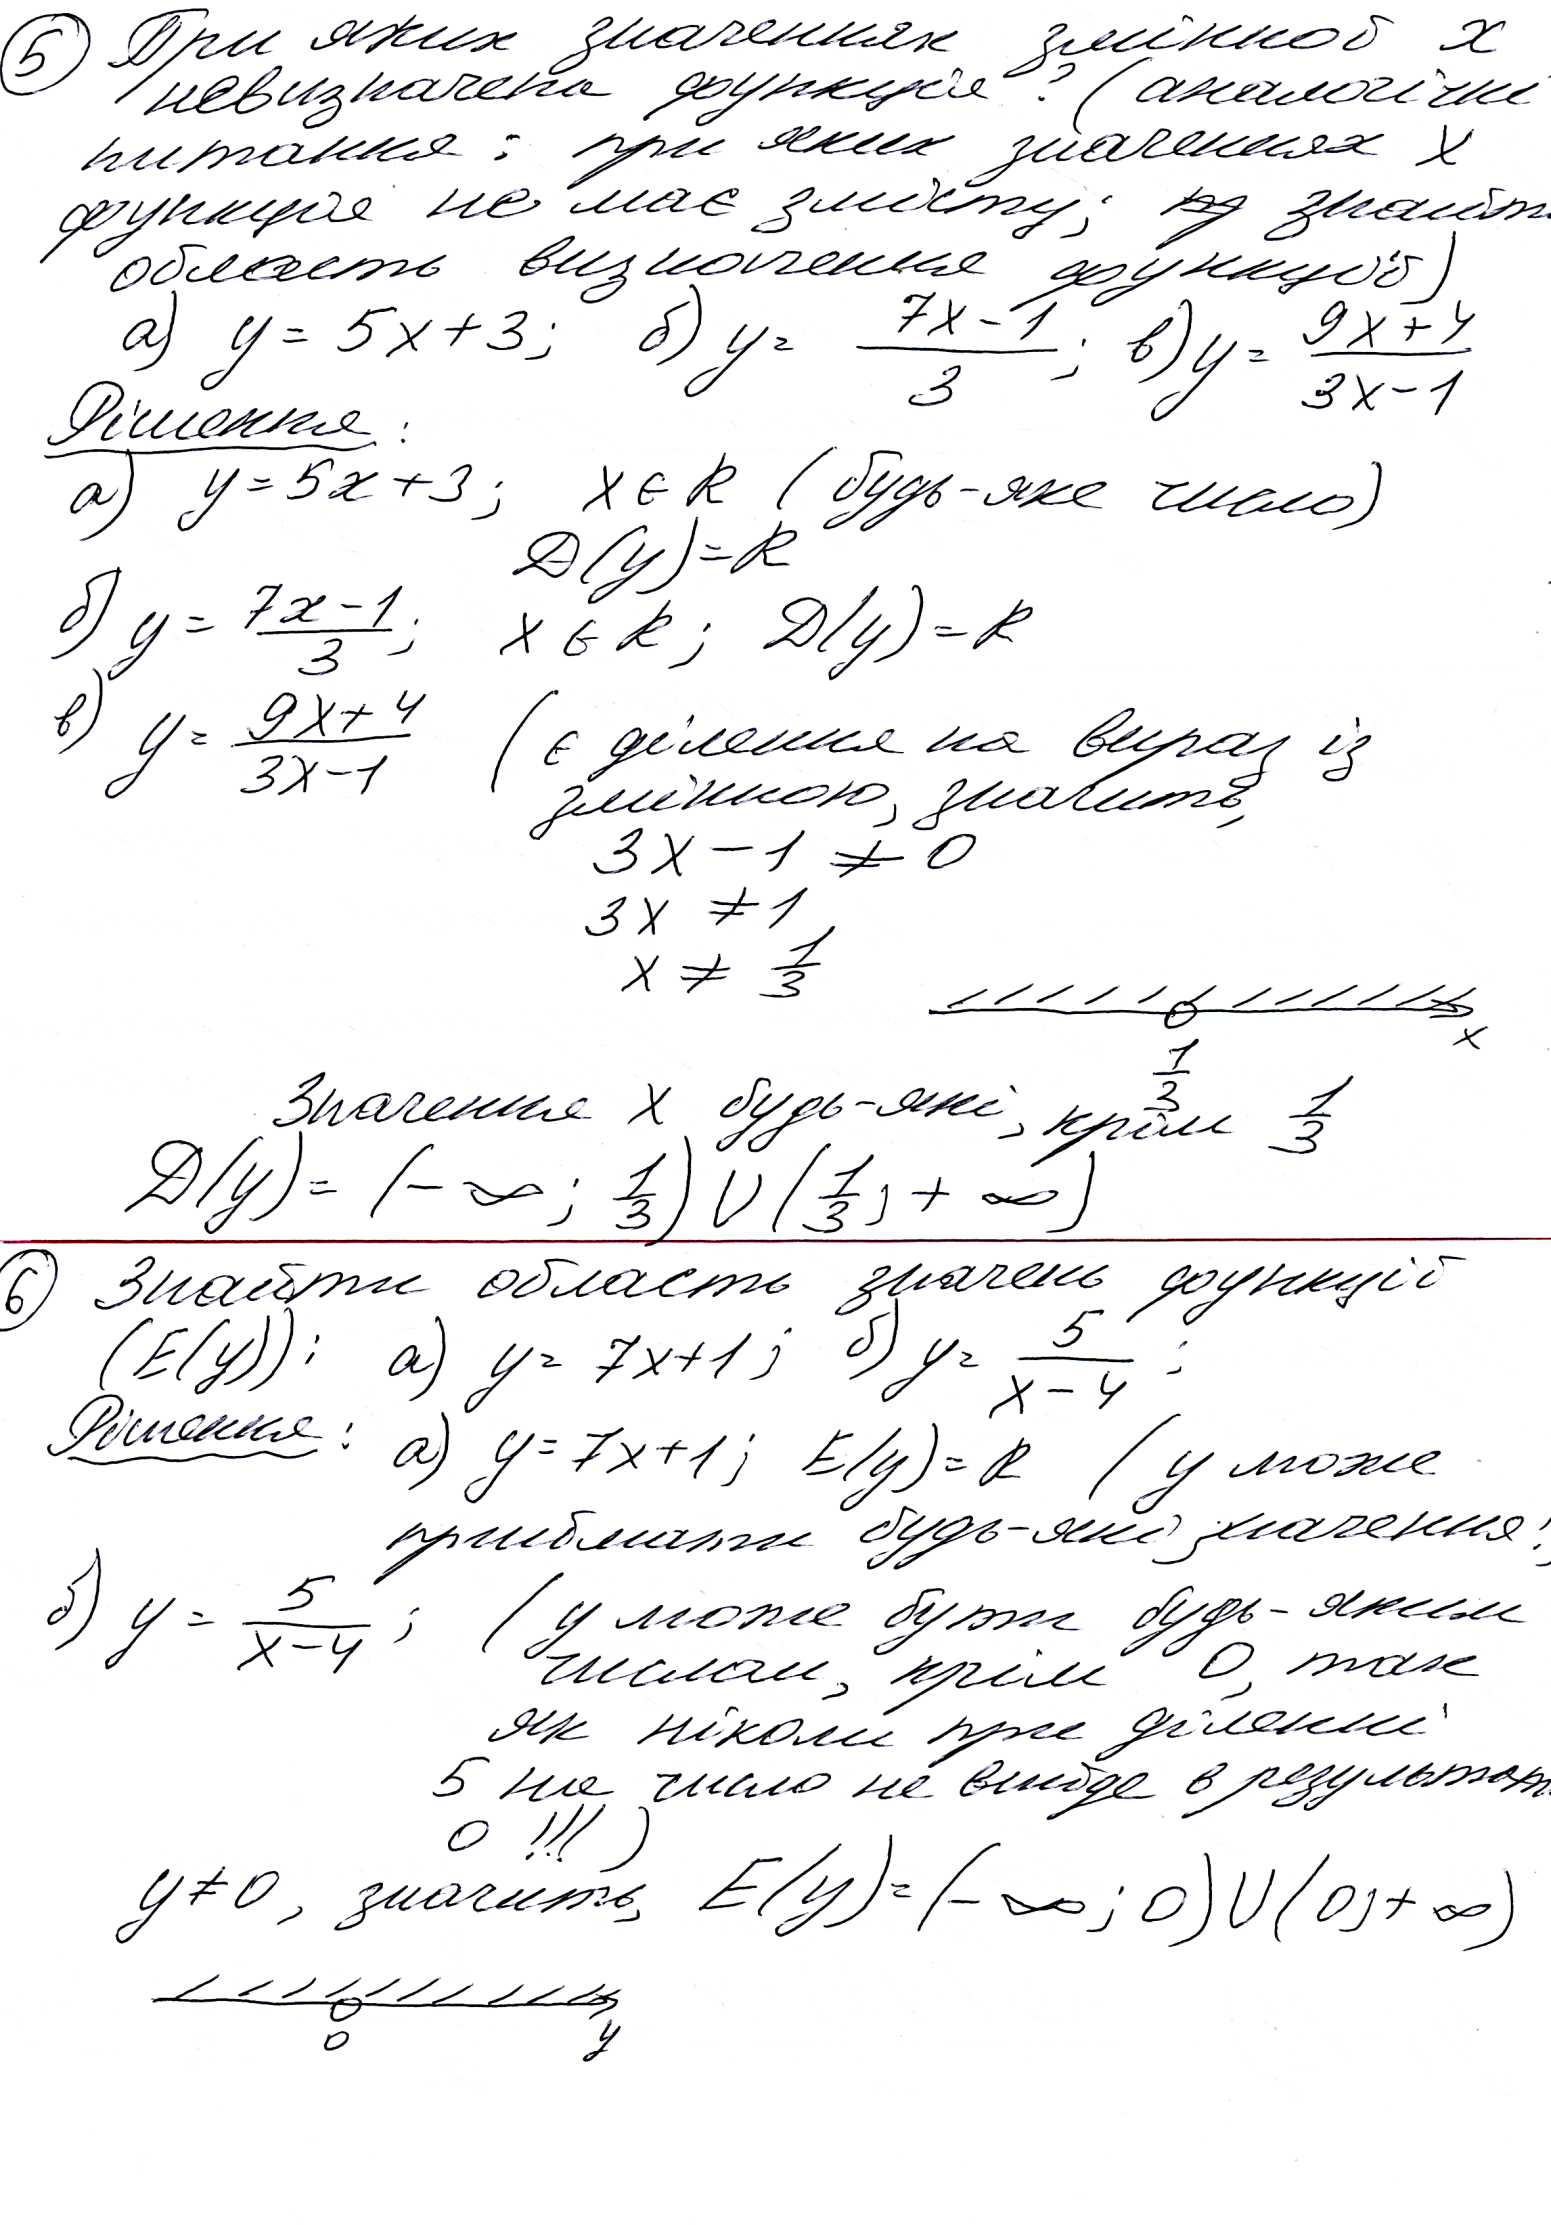 5 При яких значеннях змінної x
невизначена функція? (аналогічні
питання: при яких значеннях x
функція не має змісту; знайти
область визначення функції)
а) y = 5x+3; б) y = (7x-1)/3; в) y = (9x+4)/(3x-1)
Рішення:
а) y = 5x+3; x ∈ R (будь-яке число)
D(y) = R
б) y = (7x-1)/3; x ∈ R; D(y) = R
в) y = (9x+4)/(3x-1) (є ділення на вираз із
змінною, значить,
3x - 1 ≠ 0
3x ≠ 1
x ≠ 1/3
x
1/3
Значення x будь-які, крім 1/3
D(y) = (-∞; 1/3) U (1/3; +∞)
6 Знайти область значень функції
(E(y)): а) y = 7x+1; б) y = 5/(x-4);
Рішення: а) y = 7x+1; E(y) = R (y може
приймати будь-які значення!)
б) y = 5/(x-4); (y може бути будь-яким
числом, крім 0, так
як ніколи при діленні
5 на число не вийде в результаті
0 !!!)
y ≠ 0, значить, E(y) = (-∞; 0) U (0; +∞)
0 y